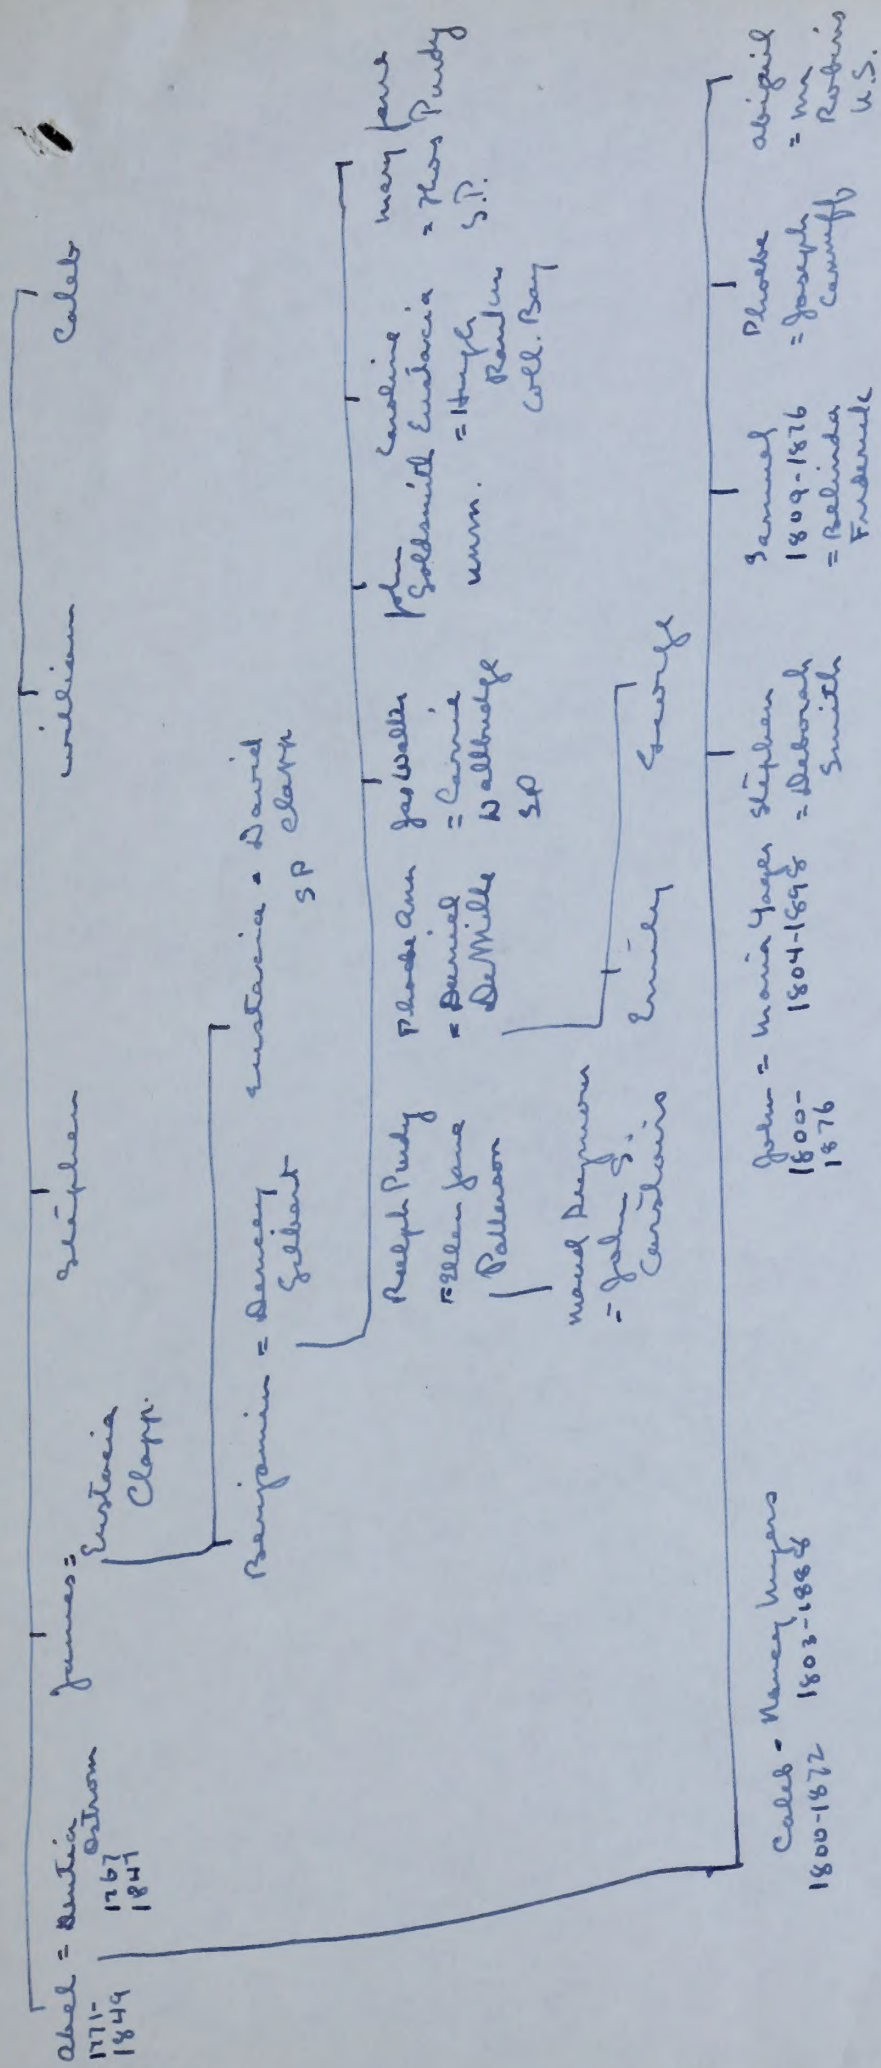 Abel = Dentia
1771-
1849
Ostrom
1767
1847
James =
Eustacia
Clapp.
Stephen
William
Caleb
Benjamin = Dency
Gilbert
Eustacia = David
SP Clapp
Ralph Purdy
= Ellen Jane
Patterson
Phoebe Ann
= Daniel
DeMille
Jas Walter
= Carrie
Wallbridge
SP
John
Goldsmith
unm.
Caroline
Eustacia
= Hugh
Coll. Bay
Mary Jane
= Thos Purdy
S.P.
Maud
= John S.
Carstairs
Emily
George
Caleb = Nancy Myers
1800-1872
1803-1888
John = Maria Yager
1800-
1876
1804-1898
Stephen
= Deborah
Smith
Samuel
1809-1876
= Belinda
Frederick
Phoebe
= Joseph
Canniff
Abigail
= Mr
Robins
U.S.